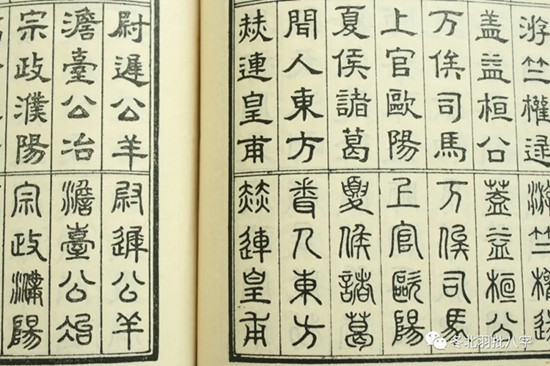 游竺權逯
盖益桓公
万俟司馬
上官歐陽
夏侯諸葛
聞人東方
赫連皇甫
游竺權逯
蓋益桓公
万俟司馬
上官歐陽
夏侯諸葛
聞人東方
赫連皇甫
尉遲公羊
澹臺公冶
宗政濮陽
尉遲公羊
澹臺公冶
宗政濮陽
冬北羽批八字